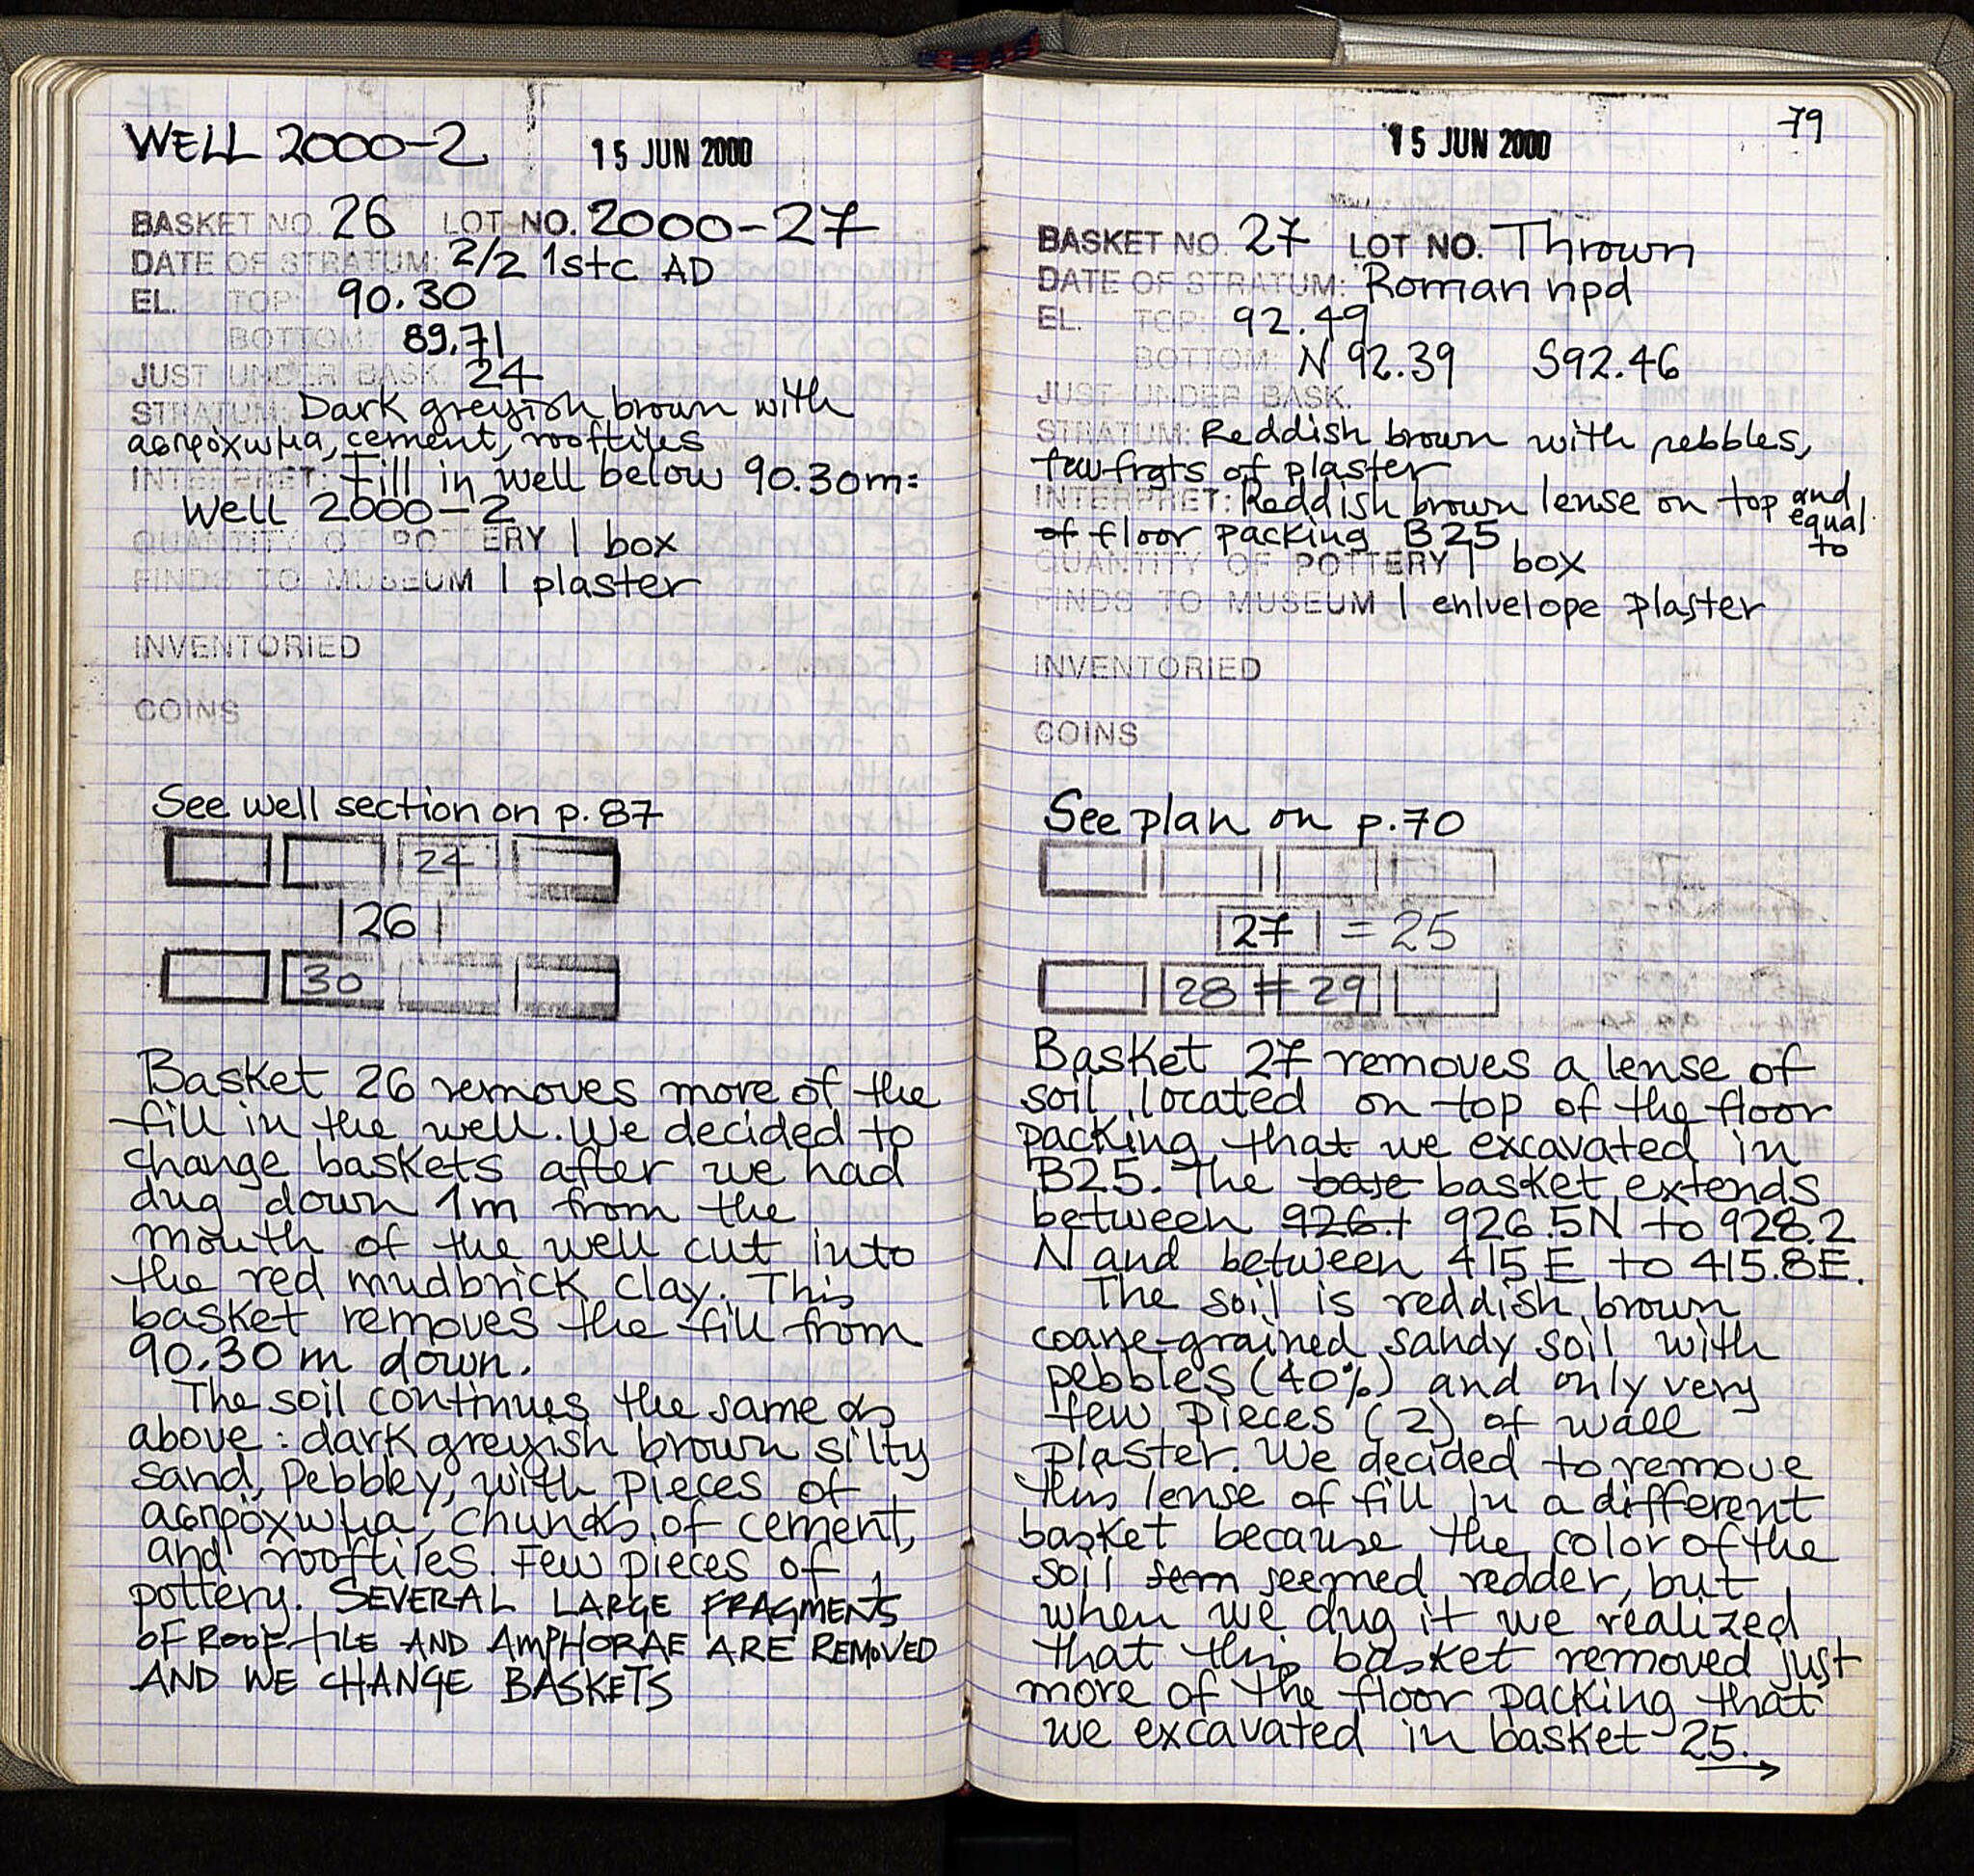 WELL 2000-2 15 JUN 2000
BASKET NO. 26 LOT NO. 2000-27
DATE OF STRATUM: 2/2 1stc AD
EL. TOP: 90.30
BOTTOM: 89.71
JUST UNDER BASK. 24
STRATUM: Dark greyish brown with
ασπρόχωμα, cement, rooftiles
INTERPRET: Fill in well below 90.30m =
Well 2000-2
QUANTITY OF POTTERY 1 box
FINDS TO MUSEUM 1 plaster
INVENTORIED
COINS
See well section on p. 87
24
26
30
Basket 26 removes more of the
fill in the well. We decided to
change baskets after we had
dug down 1m from the
mouth of the well cut into
the red mudbrick clay. This
basket removes the fill from
90.30 m down.
The soil continues the same as
above: dark greyish brown silty
sand, pebbley, with pieces of
ασπρόχωμα, chunks of cement,
and rooftiles. Few pieces of
pottery. SEVERAL LARGE FRAGMENTS
OF ROOF TILE AND AMPHORAE ARE REMOVED
AND WE CHANGE BASKETS
79
15 JUN 2000
BASKET NO. 27 LOT NO. Thrown
DATE OF STRATUM: Roman npd
EL. TOP: 92.49
BOTTOM: N 92.39 S92.46
JUST UNDER BASK.
STRATUM: Reddish brown with pebbles,
few frgts of plaster
INTERPRET: Reddish brown lense on top and equal to
of floor packing B25
QUANTITY OF POTTERY 1 box
FINDS TO MUSEUM 1 enlvelope plaster
INVENTORIED
COINS
See plan on p. 70
27 = 25
28 ≠ 29
Basket 27 removes a lense of
soil, located on top of the floor
packing that we excavated in
B25. The base basket extends
between 926.1 926.5N to 928.2
N and between 415 E to 415.8E.
The soil is reddish brown
coarse-grained sandy soil with
pebbles (40%) and only very
few pieces (2) of wall
plaster. We decided to remove
this lense of fill in a different
basket because the color of the
soil sem seemed redder, but
when we dug it we realized
that this basket removed just
more of the floor packing that
we excavated in basket 25. →